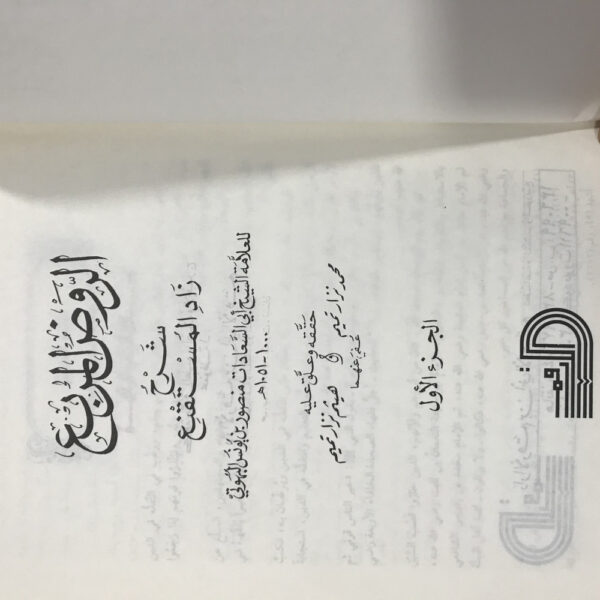 الرَّوْضُ المُرْبِع
شَرْحُ
زَادِ المُسْتَقْنِع
للعلامة الشيخ أبي السَّعادات منصور بن يونس البهوتي
١٠٠٠-١٠٥١هـ
حققه وعلق عليه
محمد نزار تميم و هيثم نزار تميم
عفي عنهما
الجزء الأول